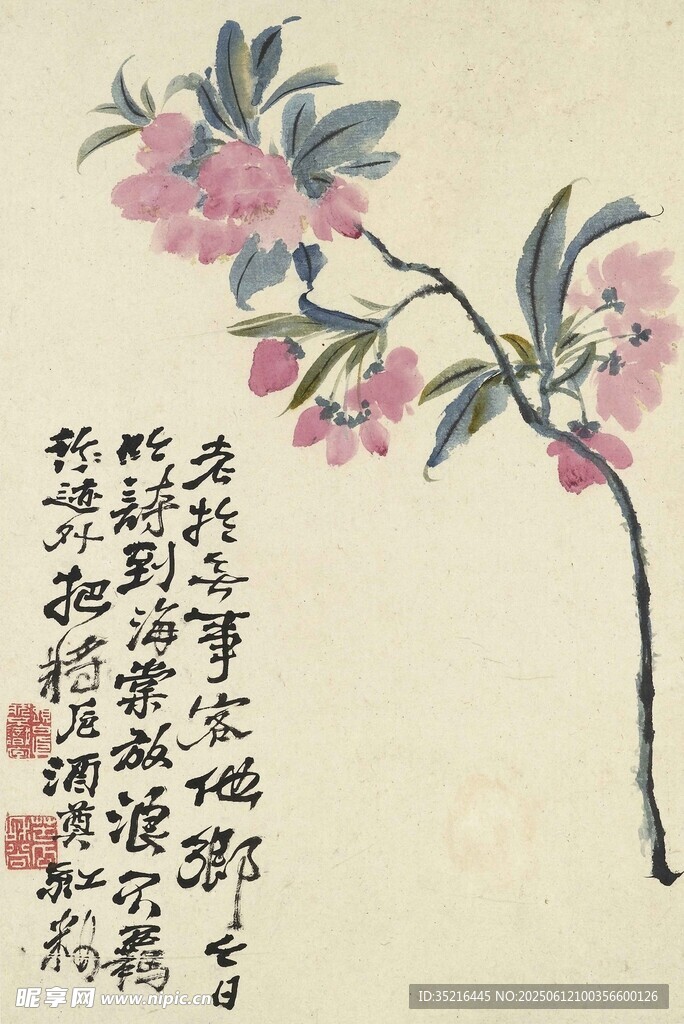 老於無事客他鄉今日
吟詩到海棠放浪不羈
形迹外把將卮酒奠紅粧
昵享网 www.nipic.cn
ID:35216445 NO:20250612100356600126